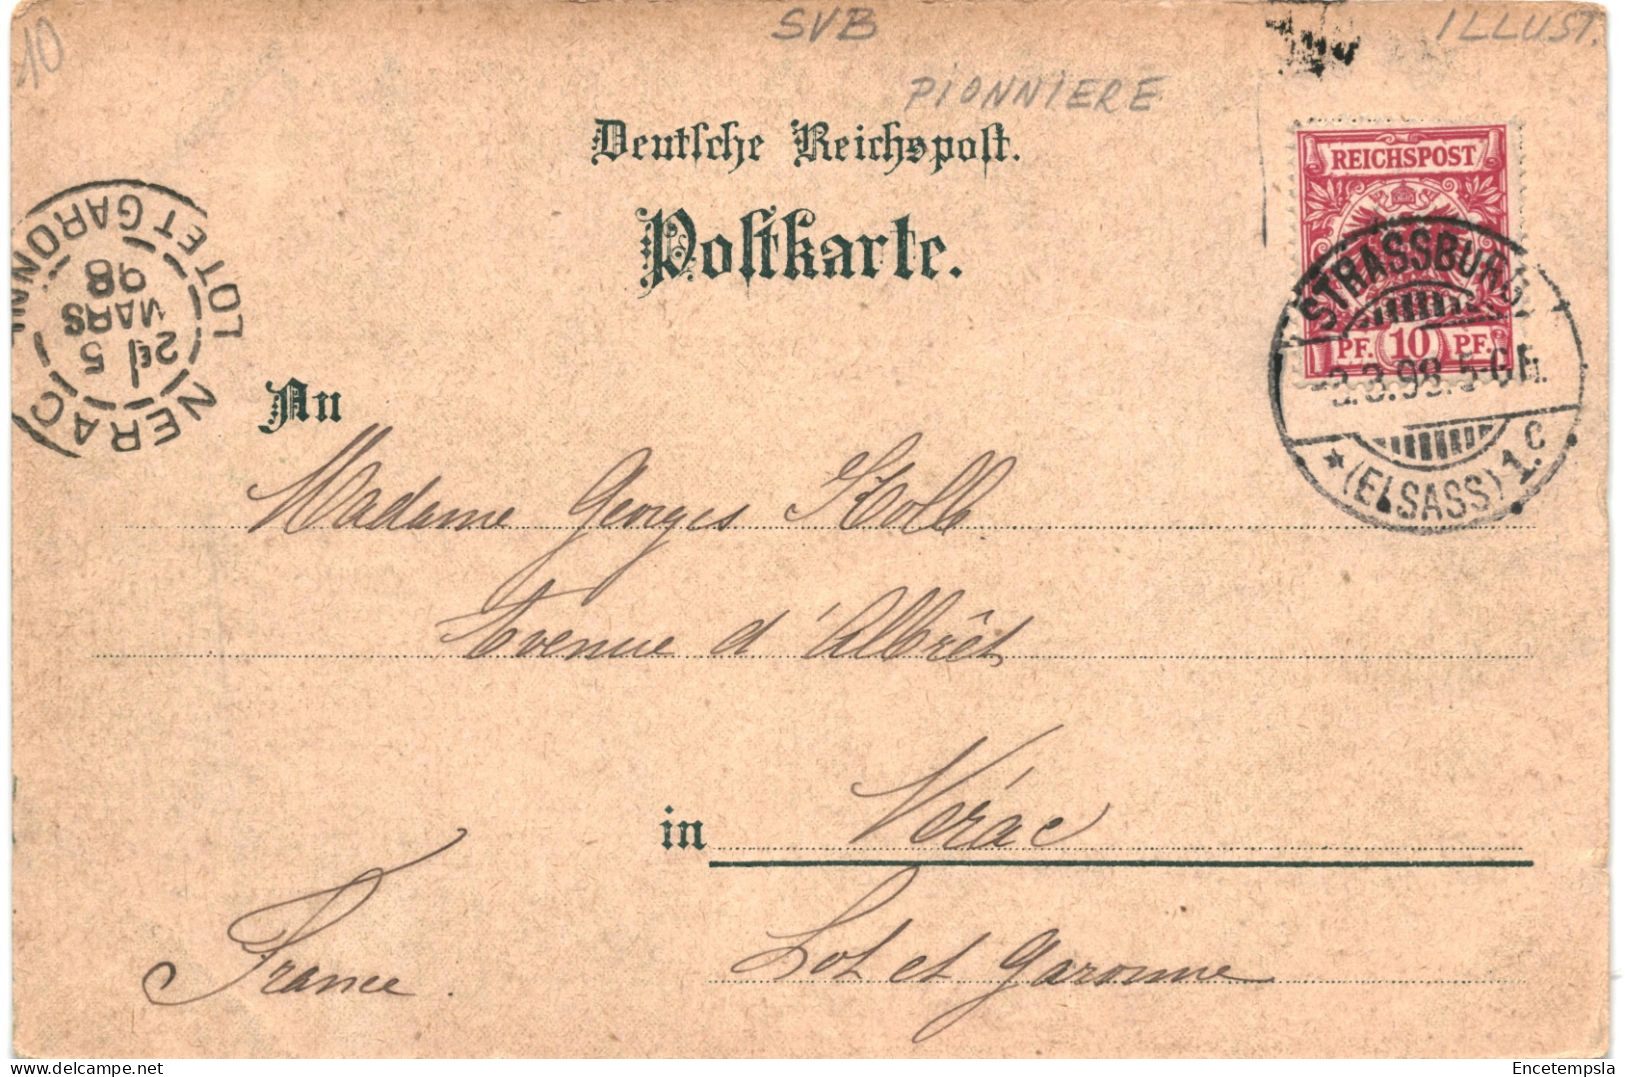 10
SVB
ILLUST.
PIONNIERE
Deutsche Reichspost.
Postkarte.
REICHSPOST
PF. 10 PF.
STRASSBURG
3.3.98. 5-6 N.
* (ELSASS) 1.c
NERAC
2E
5
MARS
98
LOT ET GARONNE
An
Madame Georges Kolb
Avenue d'Albrêt
in Nérac
Lot et Garonne
France.
Encetempsla